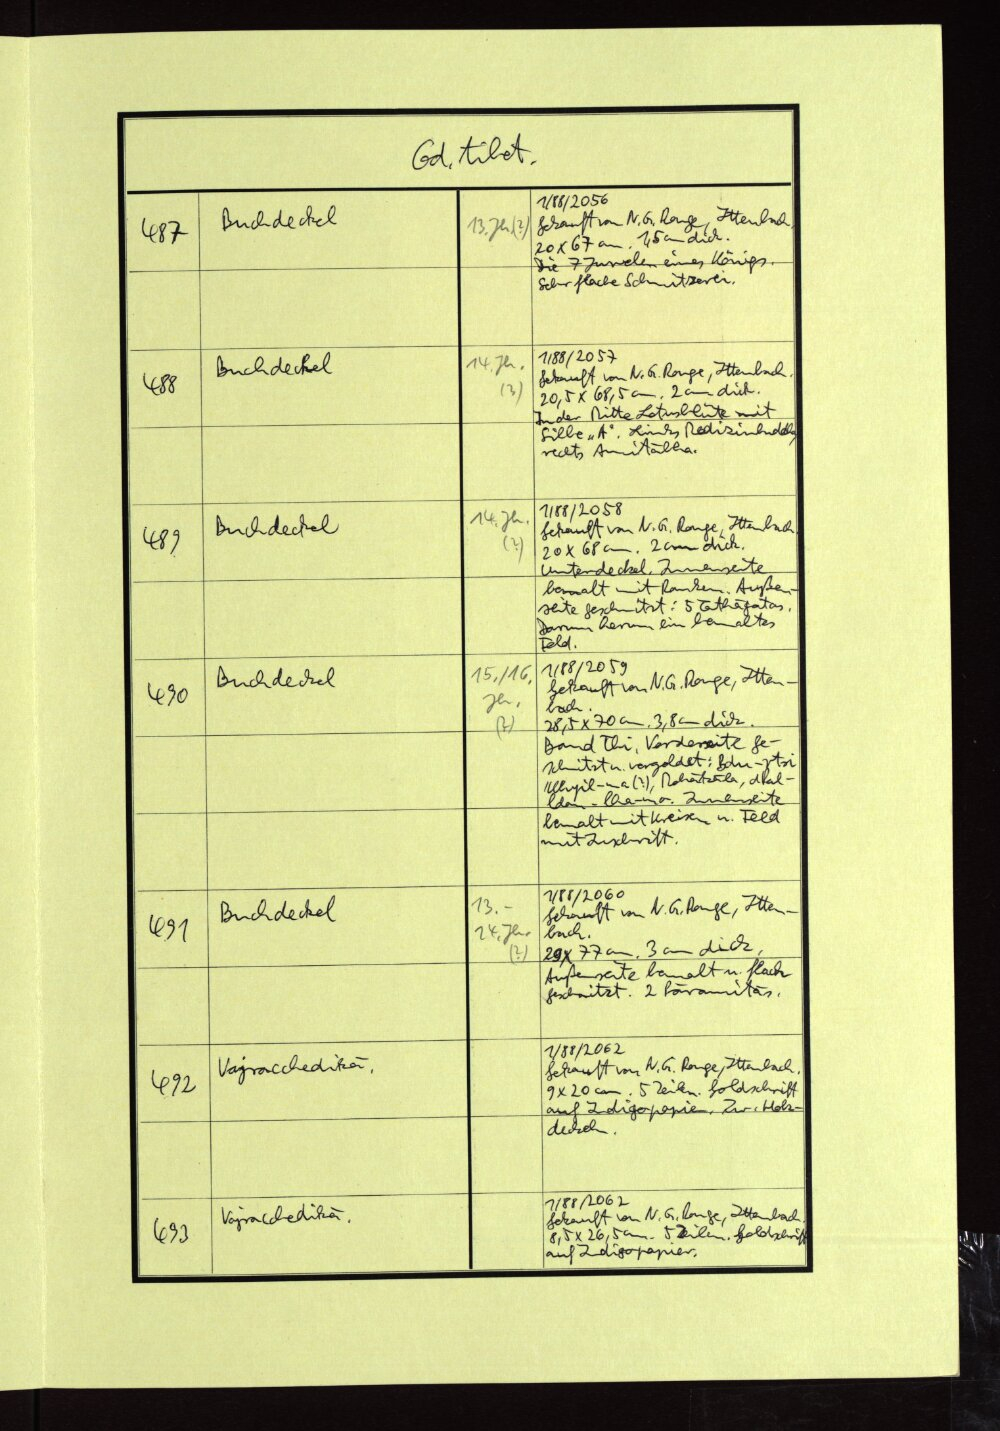 Cod. tibet.
487
Buchdeckel
13. Jh. (?)
1/88/2056
Gekauft von N. G. Ronge, Ittenbach.
20 x 67 cm. 1,5 cm dick.
Die 7 Juwelen eines Königs.
Sehr flache Schnitzerei.
488
Buchdeckel
14. Jh.
(?)
1/88/2057
Gekauft von N. G. Ronge, Ittenbach.
20,5 x 68,5 cm. 2 cm dick.
In der Mitte Lotusblüte mit
Silbe „A“. Links Medizinbuddha,
rechts Amitābha.
489
Buchdeckel
14. Jh.
(?)
1/88/2058
Gekauft von N. G. Ronge, Ittenbach
20 x 68 cm. 2 cm dick.
Unterdeckel. Innenseite
bemalt mit Ranken. Außen-
seite geschnitzt: 5 Tathāgatas.
Darum herum ein bemaltes
Feld.
490
Buchdeckel
15./16.
Jh.
(?)
1/88/2059
Gekauft von N. G. Ronge, Itten-
bach.
28,5 x 70 cm. 3,8 cm dick.
Band Thi, Vorderseite ge-
schnitzt u. vergoldet: bdu-rtsi
'khyil-ma (?), Mahākāla, dPal-
ldan-lha-mo. Innenseite
bemalt mit Kreisen u. Feld
mit Inschrift.
491
Buchdeckel
13.-
14. Jh.
(?)
1/88/2060
Gekauft von N. G. Ronge, Itten-
bach.
29 x 77 cm. 3 cm dick.
Außenseite bemalt u. flach
geschnitzt. 2 Pāramitās.
492
Vajracchedikā.
1/88/2062
Gekauft von N. G. Ronge, Ittenbach.
9 x 20 cm. 5 Zeilen. Goldschrift
auf Indigopapier. Zw. Holz-
deckeln.
493
Vajracchedikā.
1/88/2062
Gekauft von N. G. Ronge, Ittenbach.
8,5 x 26,5 cm. 5 Zeilen. Goldschrift
auf Indigopapier.